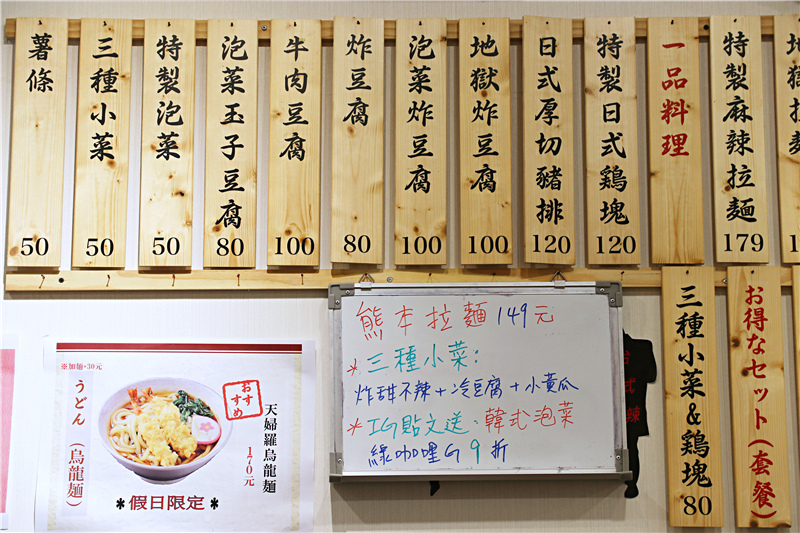 薯條
50
三種小菜
50
特製泡菜
50
泡菜玉子豆腐
80
牛肉豆腐
100
炸豆腐
80
泡菜炸豆腐
100
地獄炸豆腐
100
日式厚切豬排
120
特製日式鶏塊
120
一品料理
特製麻辣拉麵
179
地獄拉麵
三種小菜&鶏塊
80
お得なセット(套餐)
熊本拉麵 149元
*三種小菜:
炸甜不辣+冷豆腐+小黃瓜
*IG貼文送:韓式泡菜
綠咖哩G 9折
※加麵+30元
うどん(烏龍麵)
おすすめ
天婦羅烏龍麵
170元
*假日限定*